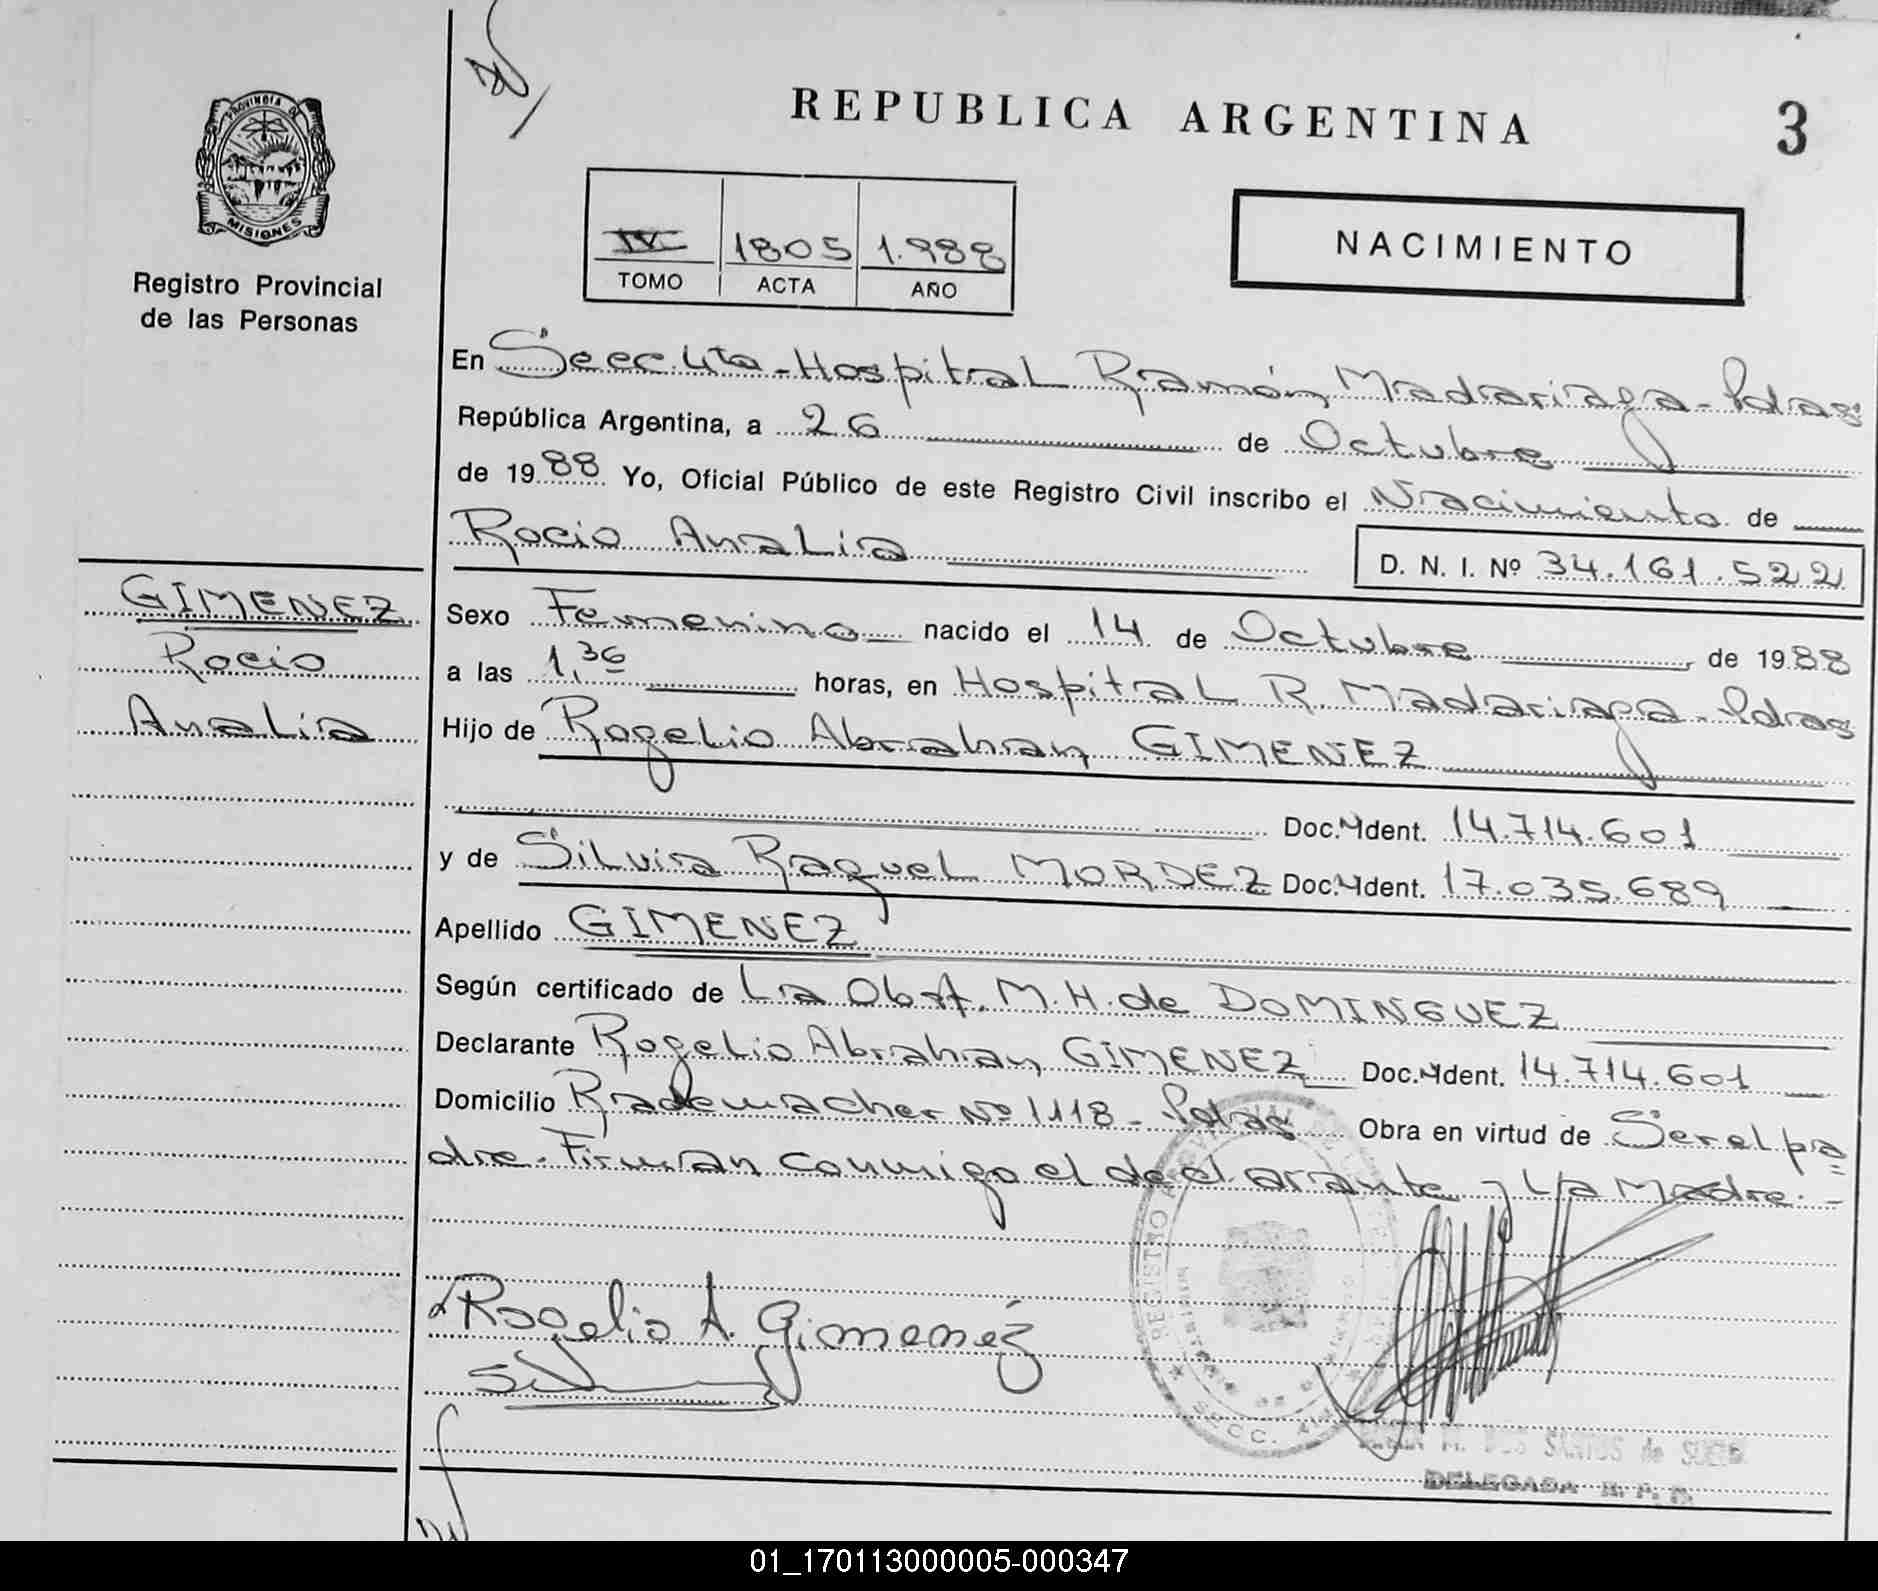 REPUBLICA ARGENTINA
3
PROVINCIA DE
MISIONES
Registro Provincial
de las Personas
IV 1805 1.988
TOMO ACTA AÑO
NACIMIENTO
En Secc. 4ta - Hospital Ramón Madariaga - Pdas
República Argentina, a 26 de Octubre
de 1988 Yo, Oficial Público de este Registro Civil inscribo el Nacimiento de
Rocio Analia D. N. I. Nº 34.161.522
GIMENEZ
Rocio
Analia
Sexo Femenino nacido el 14 de Octubre de 1988
a las 1,36 horas, en Hospital R. Madariaga - Pdas
Hijo de Rogelio Abrahan GIMENEZ
Doc. Ident. 14.714.601
y de Silvia Raquel MORDEZ Doc. Ident. 17.035.689
Apellido GIMENEZ
Según certificado de La Obst. M.H. de DOMINGUEZ
Declarante Rogelio Abrahan GIMENEZ Doc. Ident. 14.714.601
Domicilio Rademacher Nº 1118 - Pdas Obra en virtud de Ser el pa
dre - Firman conmigo el declarante y La Madre. -
Rogelio A. Gimenez
REGISTRO
SECC. 4ta
M. DOS SANTOS de
DELEGADA R. P. P.
01_170113000005-000347